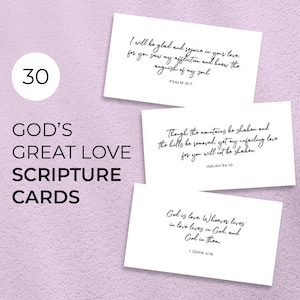 30
GOD'S
GREAT LOVE
SCRIPTURE
CARDS
I will be glad and rejoice in your love,
for you saw my affliction and knew the
anguish of my soul.
PSALM 31:7
Though the mountains be shaken and
the hills be removed, yet my unfailing love
for you will not be shaken
ISAIAH 54:10
God is love. Whoever lives
in love lives in God, and
God in them.
1 JOHN 4:16